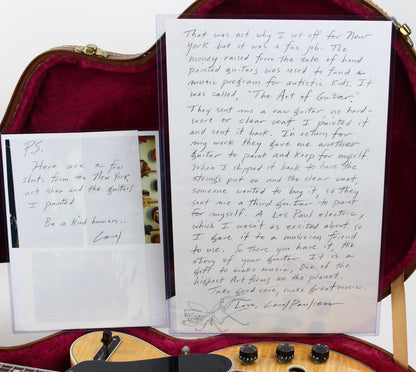 P.S.
Here are a few
shots from the New York
art show and the guitars
I painted.
Be a kind human..
Carol
That was not why I set off for New
York but it was a fun job. The
money raised from the sale of hand
painted guitars was used to fund a
music program for autistic kids. It
was called, "The Art of Guitar"
They sent me a raw guitar no hard-
ware or clear coat I painted it
and sent it back. In return for
my work they gave me another
guitar to paint and keep for myself.
When I shipped it back to have the
strings put on and the clear coat
someone wanted to buy it, so they
sent me a third guitar to paint
for myself. A Les Paul electric,
which I wasn't as excited about so
I gave it to a musician friend
to use. So there you have it, the
story of your guitar. It is a
gift to make music, One of the
highest Art forms on the planet.
Take good care, make great music.
Love, Carol Paulsen